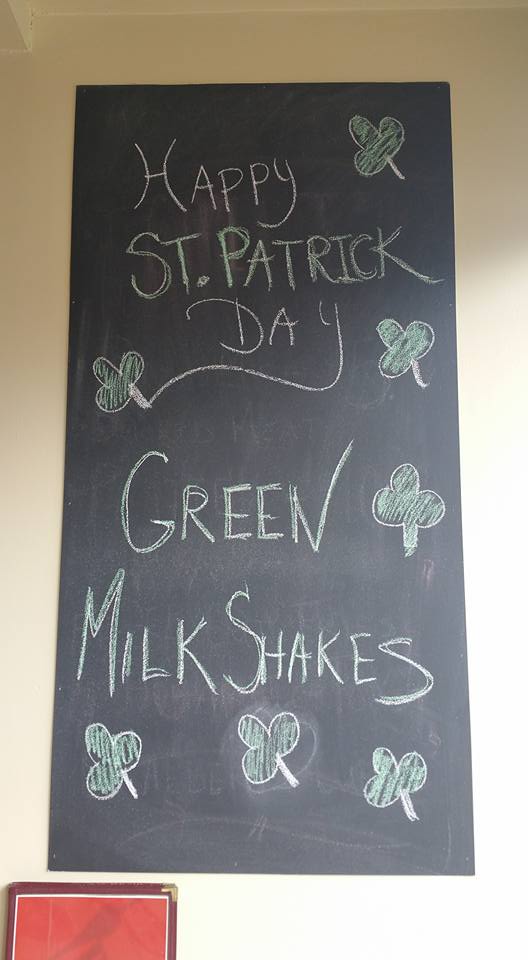 HAPPY
ST. PATRICK
DAY
GREEN
MILKSHAKES